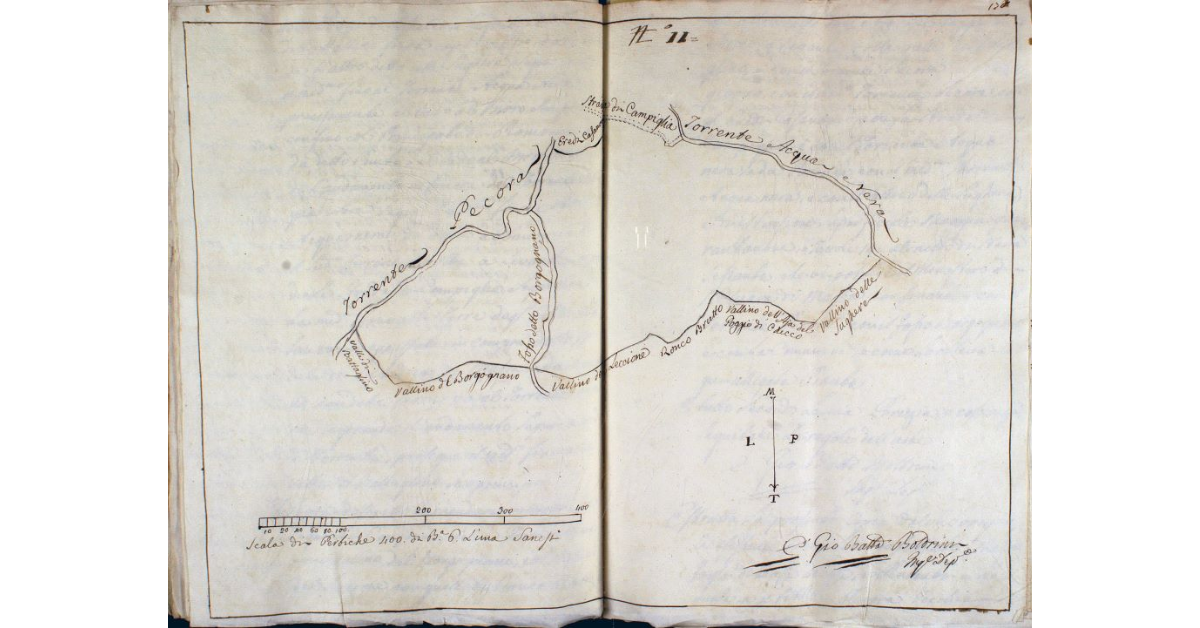 N.° 11=
Strada di Campiglia
Torrente Acqua Nera
Eredi
Torrente Pecora
Fosso detto Borgognano
Vallino di
Vallino di Borgognano
Vallino di Leccione
Ronco Brutto
Vallino dell'
Poggio di Checco
Vallino delle
M
L P
T
10 20 40 60 80 100 200 300 400
Scala di Pertiche 400. di B.a 6. L'una Sanesi
Gio Batta Boldrini
Ing.e Dep.o